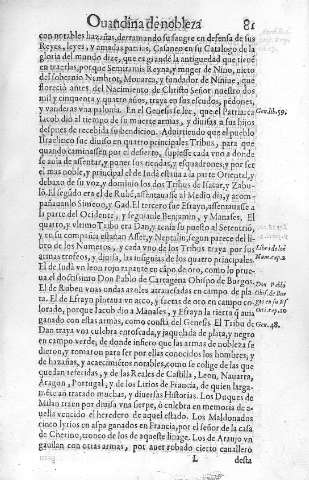 Ouandina de nobleza 81
con notables hazañas, derramando su sangre en defensa de sus
Reyes, leyes, y amadas patrias, Casaneo en su Catalogo de la
gloria del mundo dize, que es grande la antiguedad que tiene
en traerlas, porque Semiramis Reyna, y muger de Nino, nieto
del soberuio Nembrot, Monarca, y fundador de Niniue, que
florecio antes del Nacimiento de Christo Señor nuestro dos
mil y cinquenta y quatro años, traya en sus escudos, pendones,
y vanderas vna paloma. En el Genesis se lee, que el Patriarca
Iacob dio al tiempo de su muerte armas, y diuisas a sus hijos
despues de recebida su bendicion. Aduirtiendo que el pueblo
Israelitico se diuide en quatro principales Tribus, para que
quando caminassen por el desierto, supiesse cada vno a donde
se auia de assentar, y poner sus tiendas, y esquadrones; y por ser
el mas noble, y principal el de Iudà estaua a la parte Oriental, y
debaxo de su voz, y dominio los dos Tribus de Isacar, y Zabu-
lõ. El segũdo era el de Rubẽ, assentauasse al Medio dia, y acom-
pañauanle Simeon, y Gad. El tercero fue Efrayn, assentauasse a
la parte del Ocidente, y seguianle Benjamin, y Manases. El
quarto, y vltimo Tribu era Dan, y tenia su puesto al Setentriõ,
y en su compañia estauan Asser, y Neptalin, segun parece del li-
bro de los Numeros, y cada vno de los Tribus traya por sus
armas trofeos, y diuisa, las insignias de los quatro principales.
El de Iudà vn leon rojo rapante en cãpo de oro, como lo prue-
ua el doctissimo Don Pablo de Cartagena Obispo de Burgos.
El de Ruben vnas ondas azules
El de Efrayn pintaua vn arco, y saetas de oro en campo co-
lorado, porque Iacob dio a Manases, y Efrayn la tierra q̃ auia
ganado con estas armas, como consta del Genesis. El Tribu de
Dan traya vna culebra enroscada, y jaquelada de plata, y negro
en campo verde, de donde infiero que las armas de nobleza se
dieron, y tomaron para ser por ellas conocidos los hombres, y
de hazañas, y acaecimientos notables, como se colige de las que
quedan referidas, y de las Reales de Castilla, Leon, Nauarra,
Aragon, Portugal, y de los Lirios de Francia, de quien larga-
mente an tratado muchas, y diuersas Historias. Los Duques de
Milan traen por diuisa vna sierpe, ò culebra en memoria de a-
quella vencio el heredero de aquel estado. Los Maldonados
cinco lyrios en aspa ganados en Francia, por el señor de la casa
de Cherino, tronco de los de aqueste linage. Los de Araujo vn
gauilan con otras armas, por auer robado cierto cauallero
L desta
Gen. lib. 59.
Libro de los
Num. cap. 2
Don Pablo
Obis. de Bur
Gen. 48.